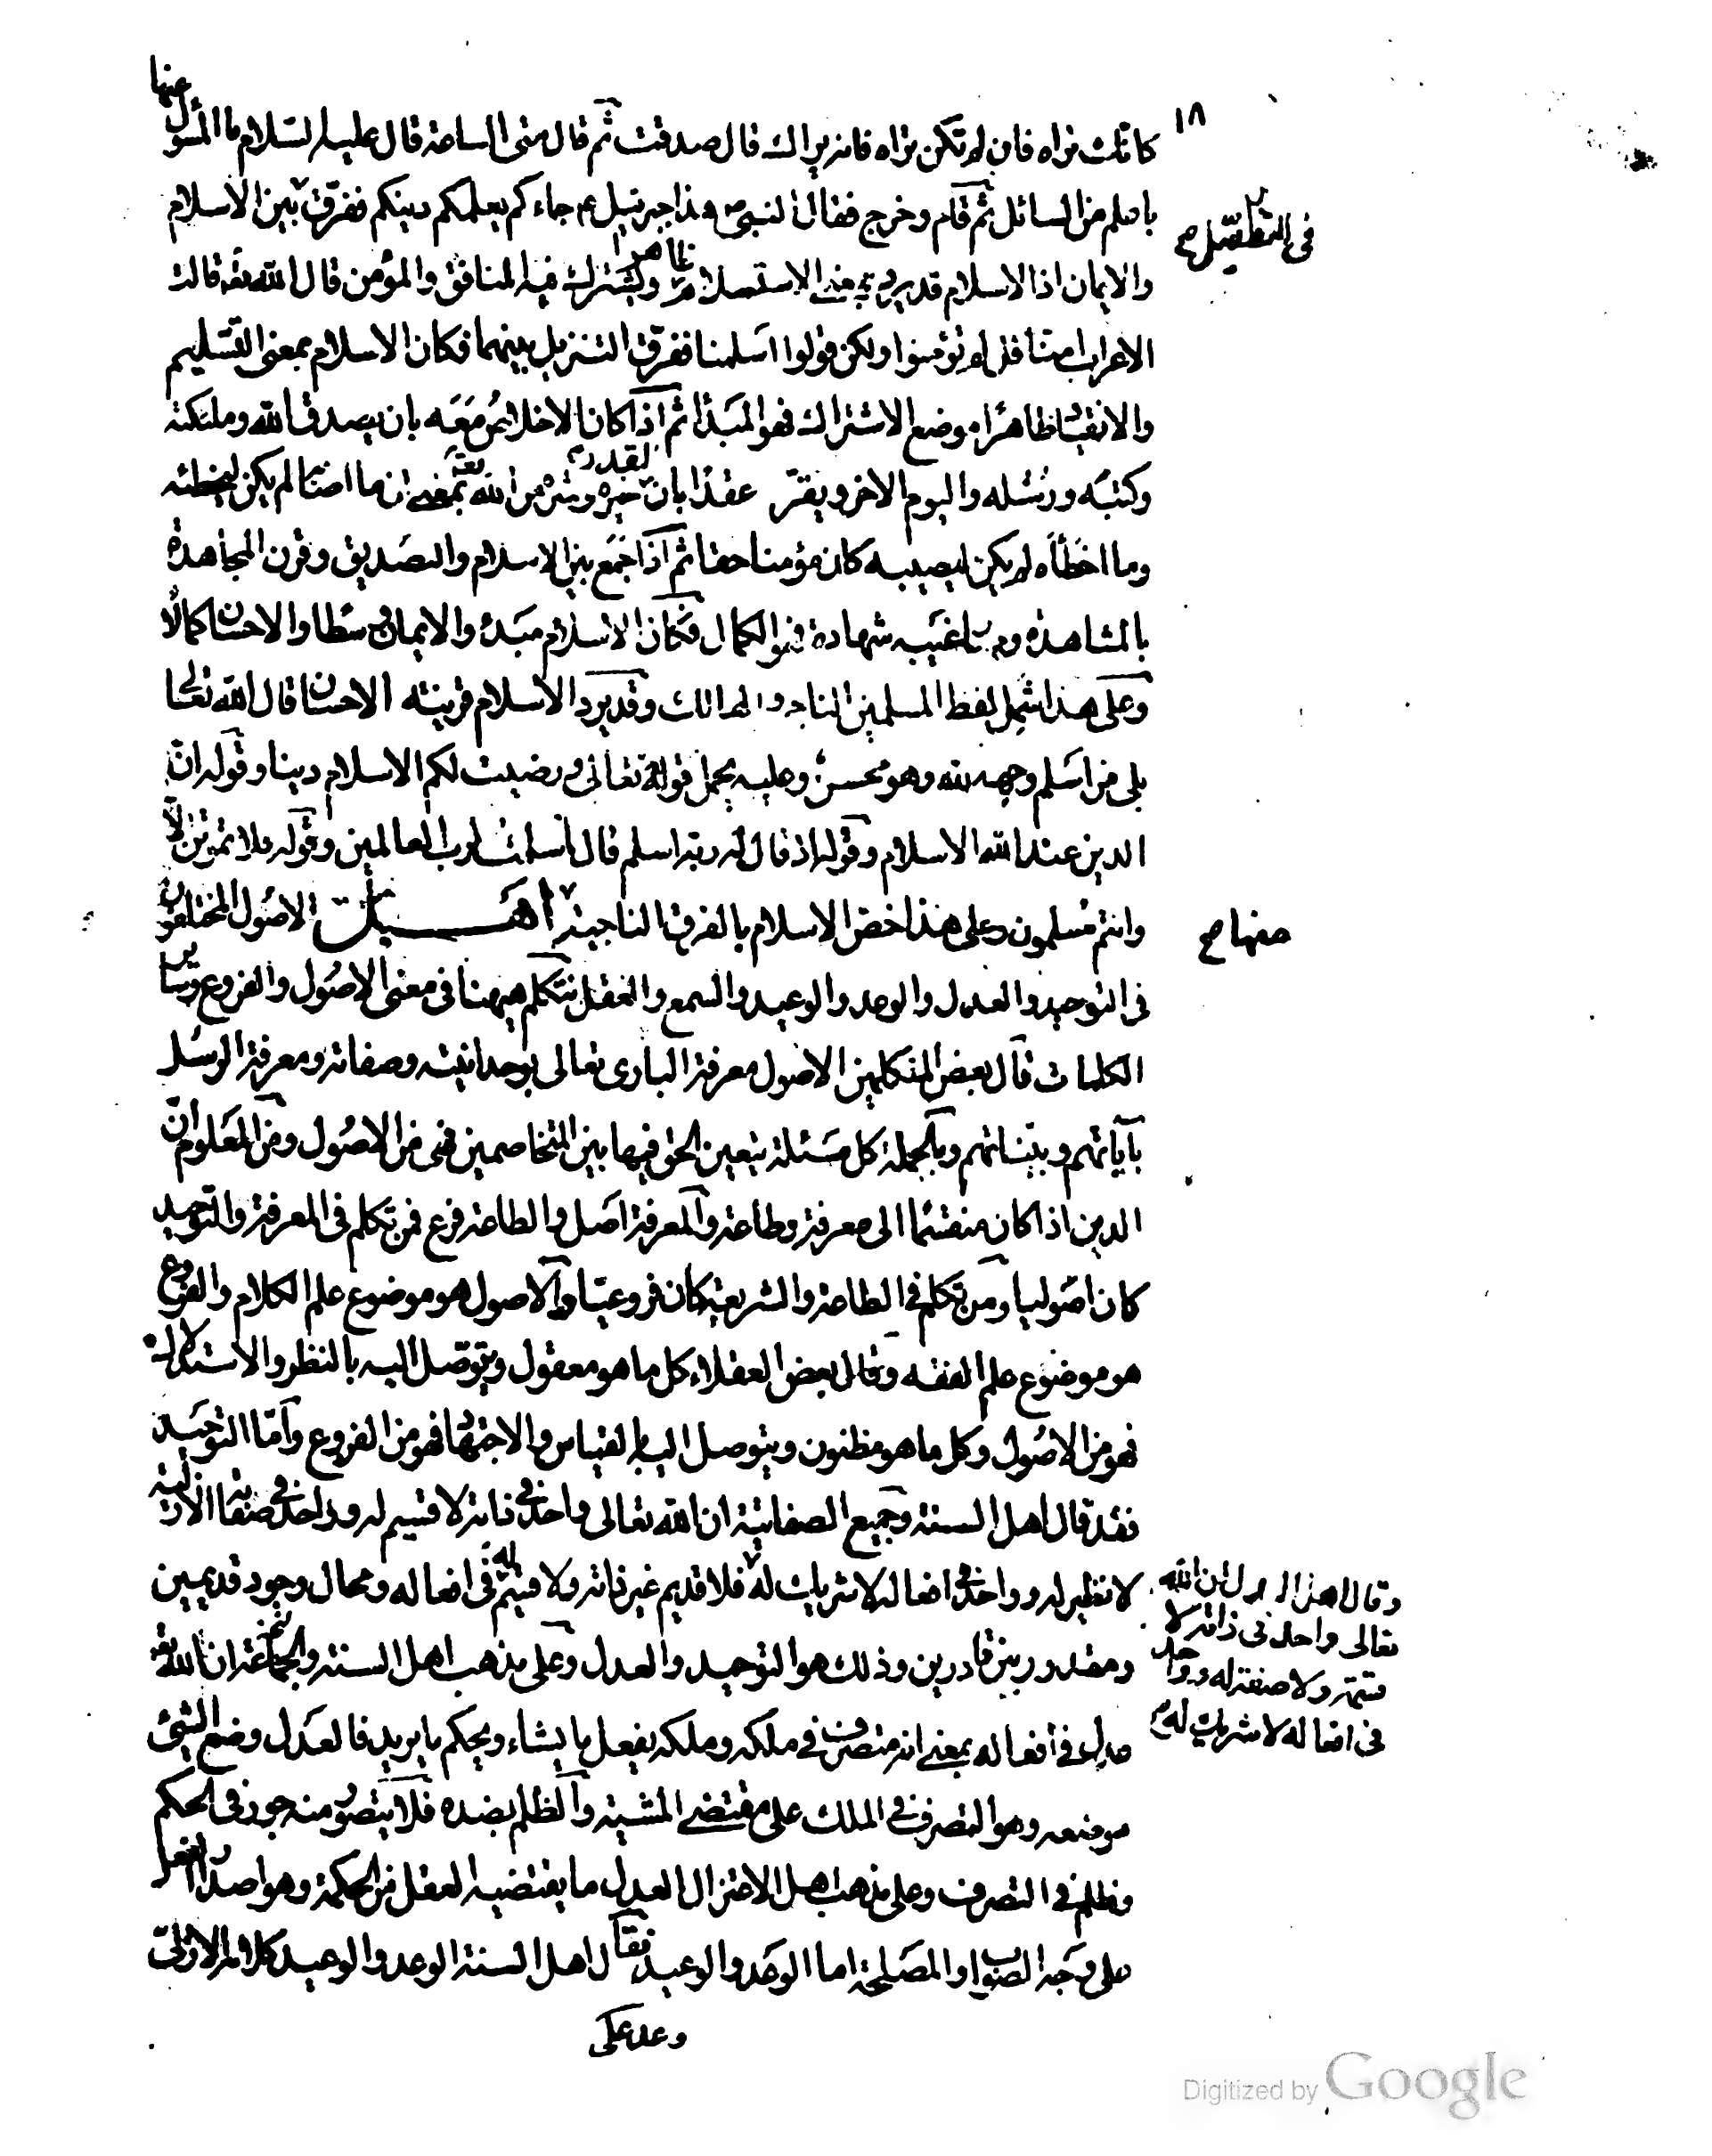 ١٨
كانك تراه فان لم تكن تراه فانه يراك قال صدقت ثم قال متى الساعة قال عليه السلام ما المسؤل عنها
باعلم من السائل ثم قام وخرج فقال النبي ص هذا جبرئيل ع جاءكم يعلمكم دينكم ففرق بين الاسلام
في التفصيل صح
والايمان اذا الاسلام قد يرد بمعنى الاستسلام ظاهرا ويشترك فيه المنافق والمؤمن قال الله تعه قالت
الاعراب امنا قل لم تؤمنوا ولكن قولوا اسلمنا ففرق التنزيل بينهما فكان الاسلام بمعنى التسليم
والانقياد ظاهرا موضع الاشتراك فهو المبدأ ثم اذا كان الاخلاص معه بان يصدق الله وملئكته
وكتبه ورسله واليوم الاخر ويقر عقدا بان القدر خيره وشره من الله تعه بمعنى ان ما اصابنا لم يكن ليخطئه
وما اخطأه لم يكن ليصيبه كان مؤمنا حقا ثم اذا جمع بين الاسلام والتصديق وقرن المجاهدة
بالمشاهدة و غيبه شهادة فهو الكمال فكان الاسلام مبدء والايمان وسطا والاحسان كمالا
وعلى هذا شمل لفظ المسلمين الناجي والهالك وقد يرد الاسلام قرينته الاحسان قال الله تعالى
بلى من اسلم وجهه لله وهو محسن وعليه يحمل قوله تعالى ورضيت لكم الاسلام دينا وقوله ان
الدين عند الله الاسلام وقوله اذ قال له ربه اسلم قال اسلمت لرب العالمين وقوله فلا تموتن الا
وانتم مسلمون وعلى هذا خص الاسلام بالفرقة الناجية اهل الاصول المختلفون
منها صح
في التوحيد والعدل والوعد والوعيد والسمع والعقل نتكلم ههنا في معنى الاصول والفروع وسائر
الكلمات قال بعض المتكلمين الاصول معرفة البارى تعالى بوحدانيته وصفاته ومعرفة الرسل
بآياتهم وبيناتهم وبالجملة كل مسئلة يتعين الحق فيها بين المتخاصمين فهي من الاصول ومن المعلوم ان
الدين اذا كان منقسما الى معرفة وطاعة والمعرفة اصل والطاعة فرع فمن تكلم في المعرفة والتوحيد
كان اصوليا ومن تكلم في الطاعة والشريعة كان فروعيا والاصول هو موضوع علم الكلام والفروع
هو موضوع علم الفقه وقال بعض العقلاء كل ما هو معقول ويتوصل اليه بالنظر والاستدلال
فهو من الاصول وكل ما هو مظنون ويتوصل اليه بالقياس والاجتهاد فهو من الفروع واما التوحيد
فقد قال اهل السنة وجميع الصفاتية ان الله تعالى واحد في ذاته لا قسيم له وواحد في صفاته الازلية
لا نظير له وواحد في افعاله لا شريك له فلا قديم غير ذاته ولا قسيم له في افعاله ومحال وجود قديمين
وقال اهل العدل ان الله
تعالى واحد في ذاته لا
قسمة ولا صفة له وواحد
في افعاله لا شريك له
ومقدور بين قادرين وذلك هو التوحيد والعدل وعلى مذهب اهل السنة والجماعة ان الله تعه
عدل في افعاله بمعنى انه متصرف في ملكه وملكه يفعل ما يشاء ويحكم ما يريد فالعدل وضع الشيئ
موضعه وهو التصرف في الملك على مقتضى المشية والظلم بضده فلا يتصور منه جور في الحكم
وظلم في التصرف وعلى مذهب اهل الاعتزال العدل ما يقتضيه العقل من الحكمة وهو اصدار الفعل
على وجه الصواب والمصلحة اما الوعد والوعيد فقال اهل السنة الوعد والوعيد كلامه الازلي
وعد على
Digitized by Google